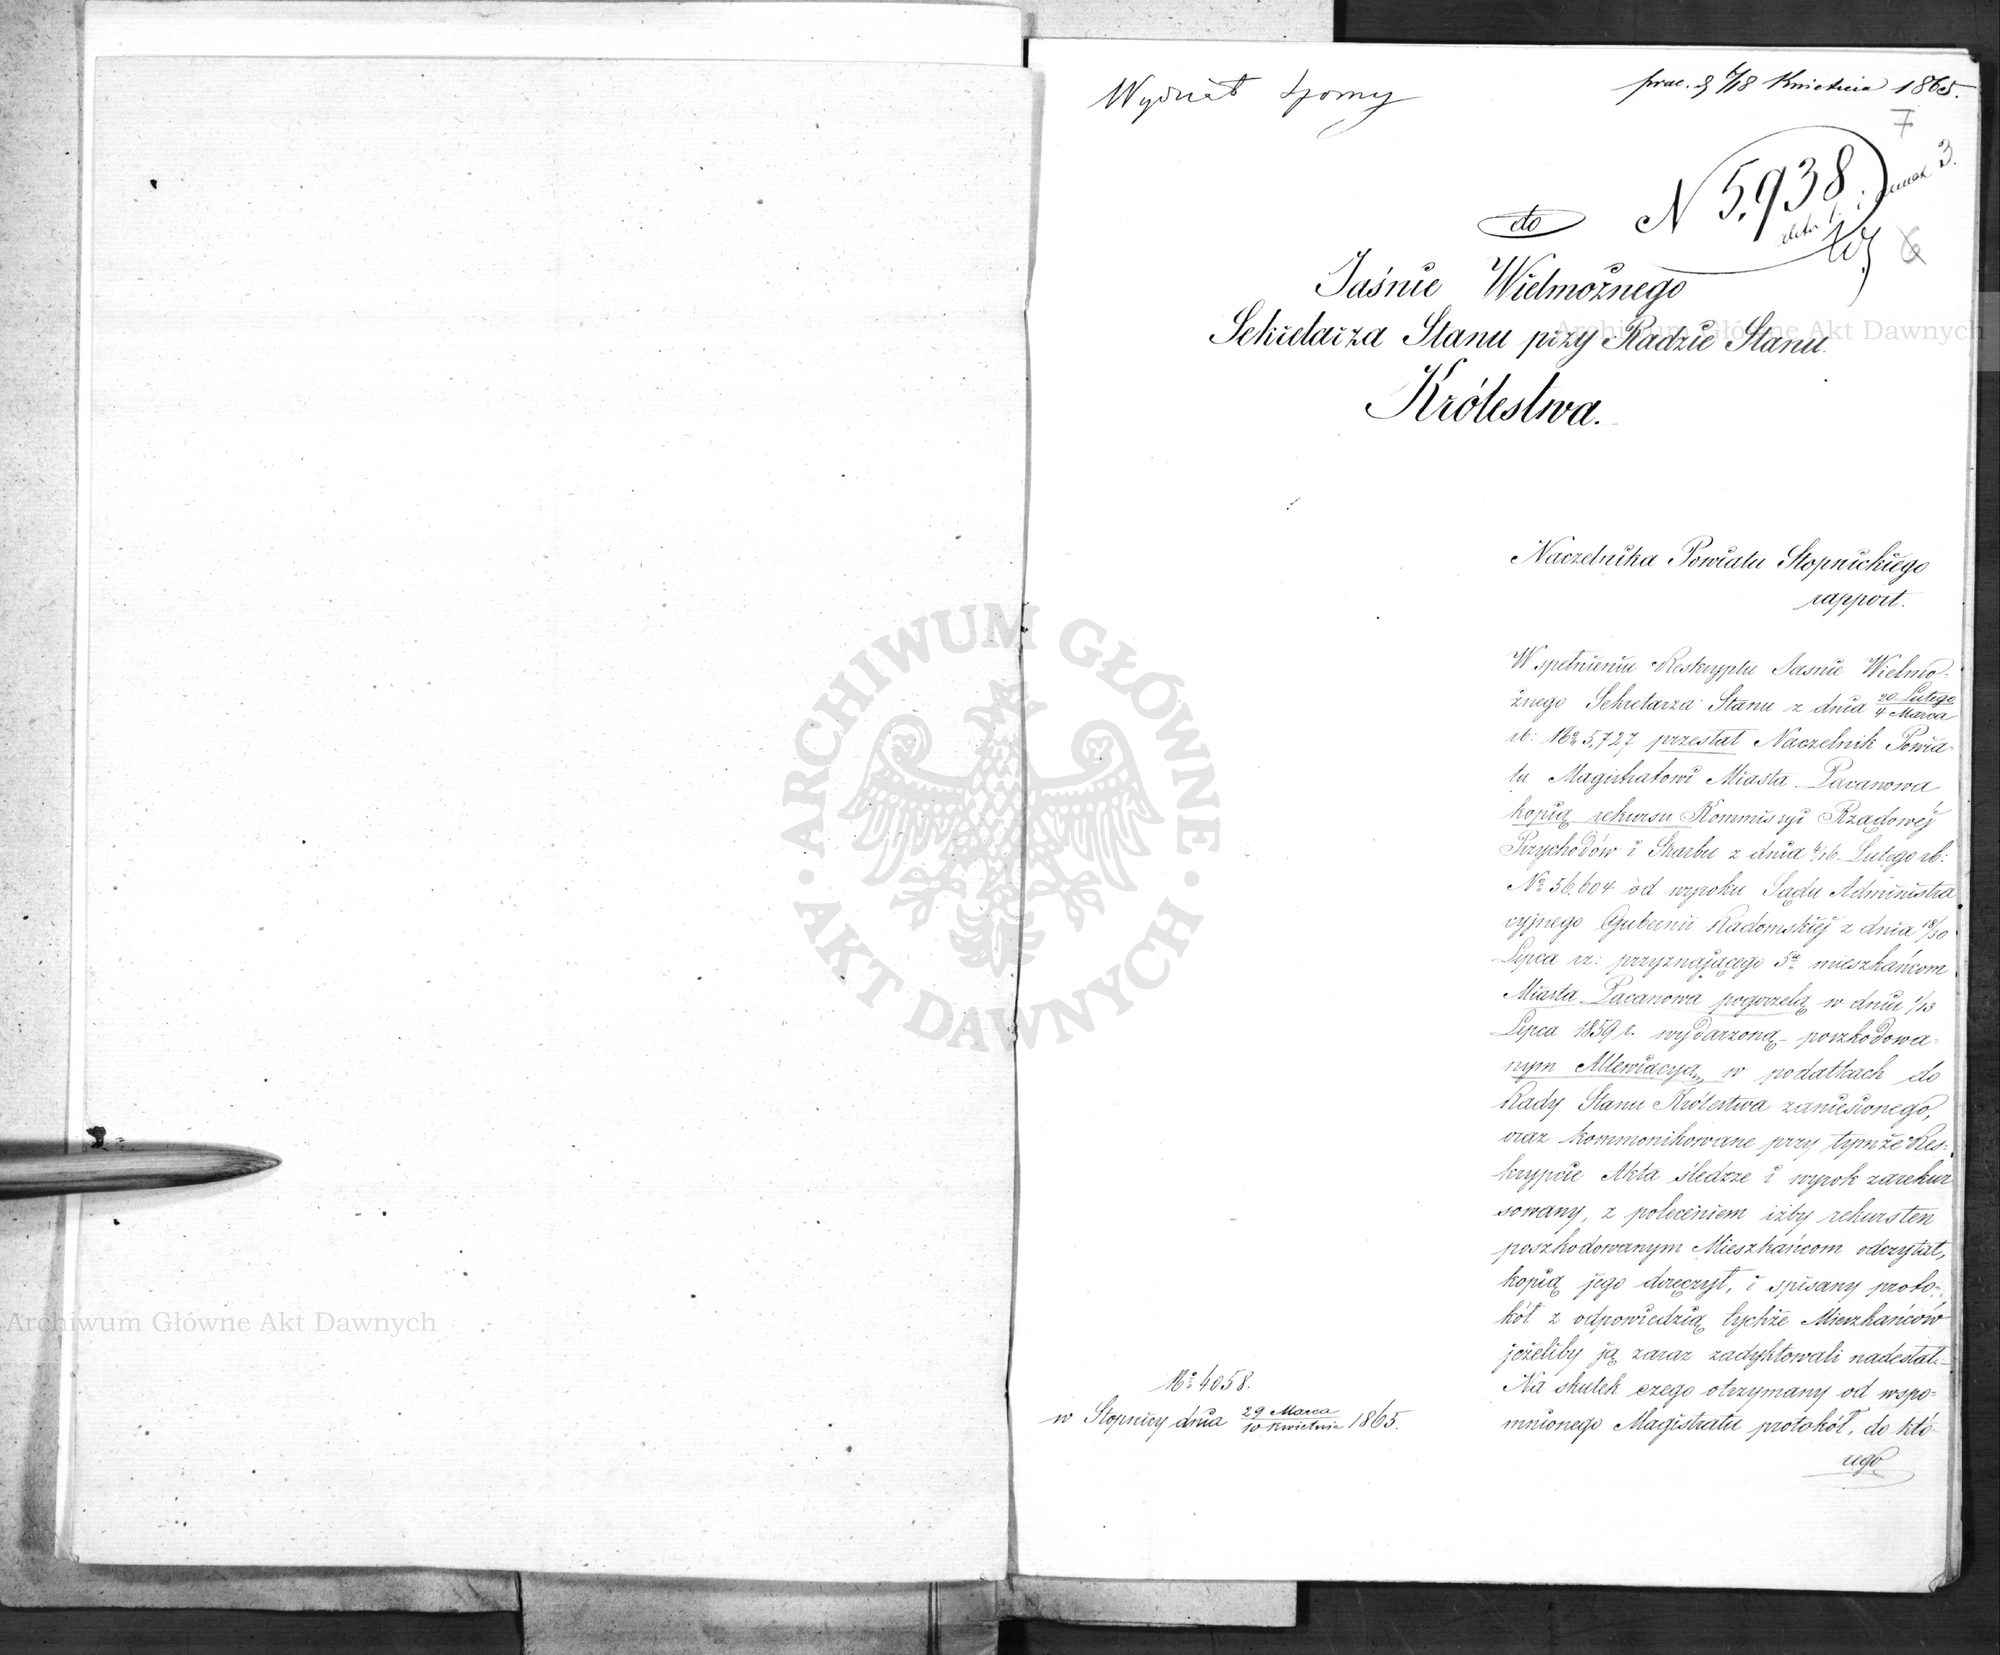 Wydział Sporny
prae. d 6/18 Kwietnia 1865.
7
N 5,938
3.
6
do
Jaśnie Wielmożnego
Sekretarza Stanu przy Radzie Stanu
Królestwa.
Naczelnika Powiatu Stopnickiego
rapport.
W spełnieniu Reskryptu Jaśnie Wielmo-
żnego Sekretarza Stanu z dnia 20 Lutego/4 Marca
rb: No 5,727 przesłał Naczelnik Powia-
tu Magistratowi Miasta Pacanowa
kopią rekursu Kommissyi Rządowéj
Przychodów i Skarbu z dnia 4/16 Lutego rb:
No 56,604 od wyroku Sądu Administra
cyjnego Gubernii Radomskiéj z dnia 18/30
Lipca rz: przyznającego 5u mieszkańcom
Miasta Pacanowa pogorzelą w dniu 1/13
Lipca 1859 r. wydarzoną poszkodowa-
nym Allewiacyą w podatkach do
Rady Stanu Królestwa zaniesionego,
oraz kommonikowane przy tymże Res-
krypcie Akta śledcze i wyrok zarekur
sowany, z poleceniem iżby rekurs ten
poszkodowanym Mieszkańcom odczytał,
kopią jego doręczył, i spisany proto-
kół z odpowiedzią tychże Mieszkańców
jeżeliby ją zaraz zadyktowali nadesłał.
Na skutek czego otrzymany od wspo-
mnionego Magistratu protokół, do któ
rego
No 4058.
w Stopnicy dnia 29 Marca/10 Kwietnia 1865.
Archiwum Główne Akt Dawnych
Archiwum Główne Akt Dawnych
ARCHIWUM GŁÓWNE · AKT DAWNYCH ·